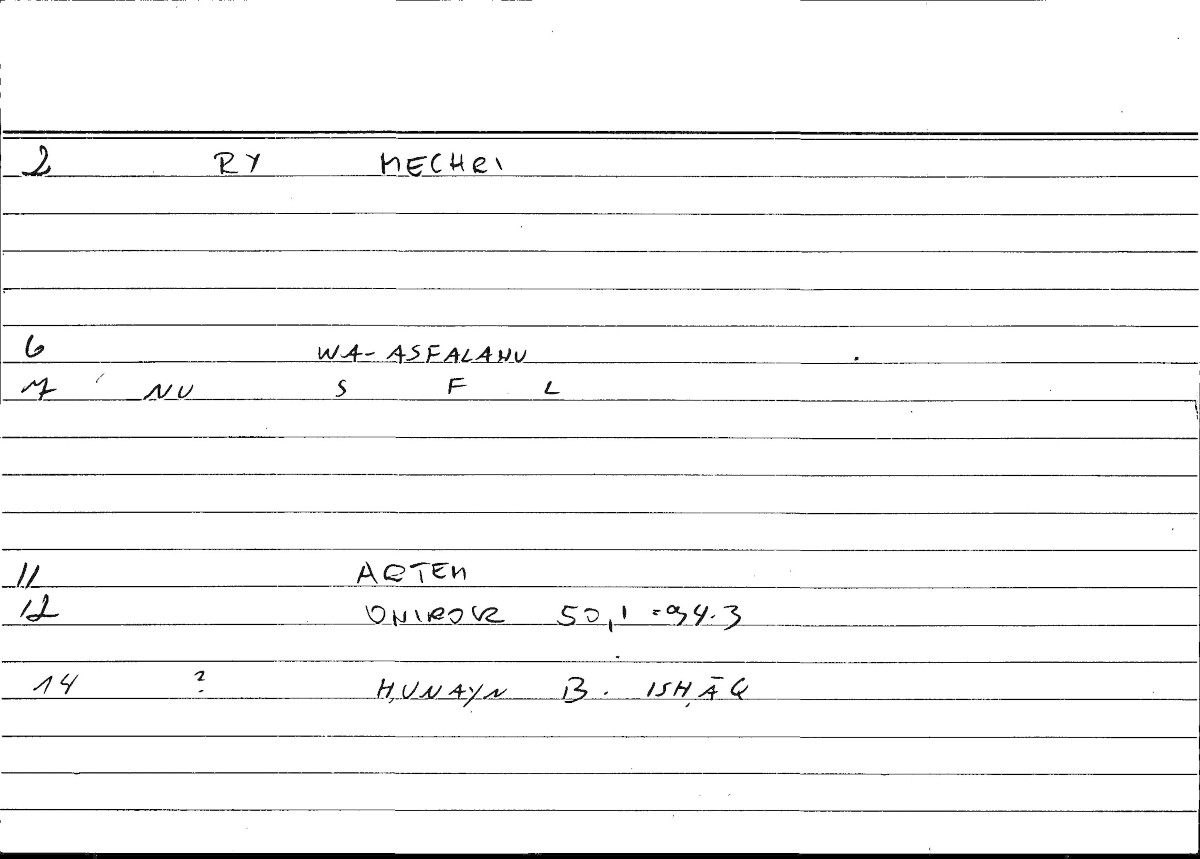 2 RY MECHRI
6 WA-ASFALAHU
7 NU S F L
11 ARTEM
12 ONIROCR 50,1 = 94.3
14 ? ḤUNAYN B. ISḤĀQ